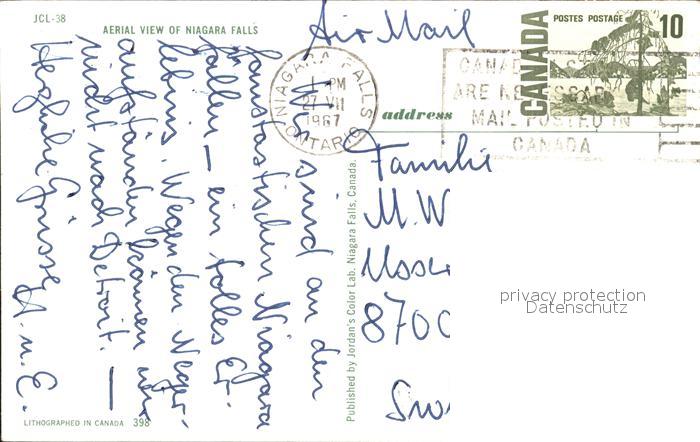 JCL-38
AERIAL VIEW OF NIAGARA FALLS
Air Mail
CANADA
POSTES POSTAGE
10
NIAGARA FALLS
1 PM
27 VII
1967
ONTARIO
ARE NECESSARY
MAIL POSTED IN
CANADA
address
Wir sind an den
fantastischen Niagara
fällen – ein tolles Er-
lebnis. Wegen den Neger-
aufständen können wir
nicht nach Detroit. —
Herzliche Grüsse
H. u. E.
Familie
M. W
8700
privacy protection
Datenschutz
Published by Jordan's Color Lab. Niagara Falls, Canada.
LITHOGRAPHED IN CANADA 398